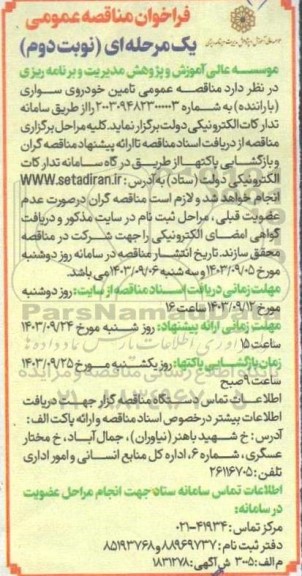 فراخوان مناقصه عمومی
یک مرحله ای (نوبت دوم)
موسسه عالی آموزش و پژوهش مدیریت و برنامه ریزی
در نظر دارد مناقصه عمومی تامین خودروی سواری
(با راننده) به شماره ۲۰۰۳۰۹۴۸۲۳۰۰۰۰۰۳ را از طریق سامانه
تدارکات الکترونیکی دولت برگزار نماید. کلیه مراحل برگزاری
مناقصه از دریافت اسناد مناقصه تا ارائه پیشنهاد مناقصه گران
و بازگشایی پاکتها از طریق درگاه سامانه تدارکات
الکترونیکی دولت (ستاد) به آدرس: WWW.setadiran.ir
انجام خواهد شد و لازم است مناقصه گران در صورت عدم
عضویت قبلی، مراحل ثبت نام در سایت مذکور و دریافت
گواهی امضای الکترونیکی را جهت شرکت در مناقصه
محقق سازند. تاریخ انتشار مناقصه در سامانه روز دوشنبه
مورخ ۱۴۰۳/۰۹/۰۵ و سه شنبه ۱۴۰۳/۰۹/۰۶ می باشد.
مهلت زمانی دریافت اسناد مناقصه از سایت: روز دوشنبه
مورخ ۱۴۰۳/۰۹/۱۲ ساعت ۱۶
مهلت زمانی ارائه پیشنهاد: روز شنبه مورخ ۱۴۰۳/۰۹/۲۴
ساعت ۱۵
زمان بازگشایی پاکتها: روز یکشنبه مورخ ۱۴۰۳/۰۹/۲۵
ساعت ۹ صبح
اطلاعات تماس دستگاه مناقصه گزار جهت دریافت
اطلاعات بیشتر در خصوص اسناد مناقصه و ارائه پاکت الف:
آدرس: خ شهید باهنر (نیاوران)، جمال آباد، خ مختار
عسگری، شماره ۶، اداره کل منابع انسانی و امور اداری
تلفن: ۲۶۱۱۶۷۰۵
اطلاعات تماس سامانه ستاد جهت انجام مراحل عضویت
در سامانه:
مرکز تماس: ۴۱۹۳۴-۰۲۱
دفتر ثبت نام: ۸۸۹۶۹۷۳۷ و ۸۵۱۹۳۷۶۸
م الف: ۳۰۰۵ ش آگهی: ۱۸۳۱۲۷۸